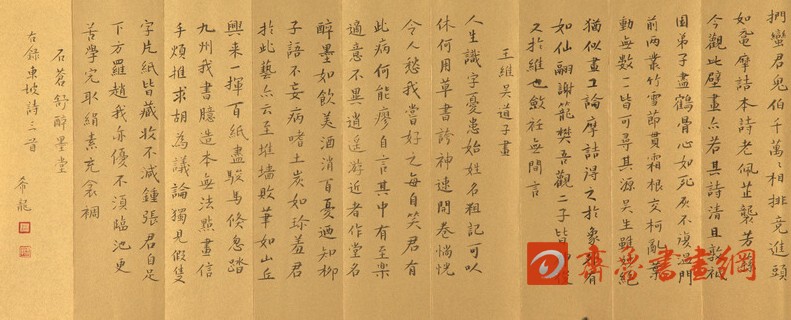 捫蠻君鬼伯千萬〻相排競進頭
如黿摩詰本詩老佩芷襲芳蓀
今觀此壁畫亦若其詩清且敦祇
園弟子盡鶴骨心如死灰不復溫門
前兩叢竹雪節貫霜根交柯亂葉
動無數一一皆可尋其源吳生雖妙絕
猶似畫工論摩詰得之於象外有
如仙翮謝籠樊吾觀二子皆
又於維也斂衽無間言
王維吳道子畫
人生識字憂患始姓名粗記可以
休何用草書誇神速開卷惝怳
令人愁我嘗好之每自笑君有
此病何能瘳自言其中有至樂
適意不異逍遙游近者作堂名
醉墨如飲美酒消百憂迺知柳
子語不妄病嗜土炭如珍羞君
於此藝亦云至堆牆敗筆如山丘
興來一揮百紙盡駿馬倏忽踏
九州我書臆造本無法點畫信
手煩推求胡為議論獨見假隻
字片紙皆藏收不減鍾張君自足
下方羅趙我亦優不須臨池更
苦學完取絹素充衾裯
石蒼舒醉墨堂
右錄東坡詩三首
齊魯書畫網